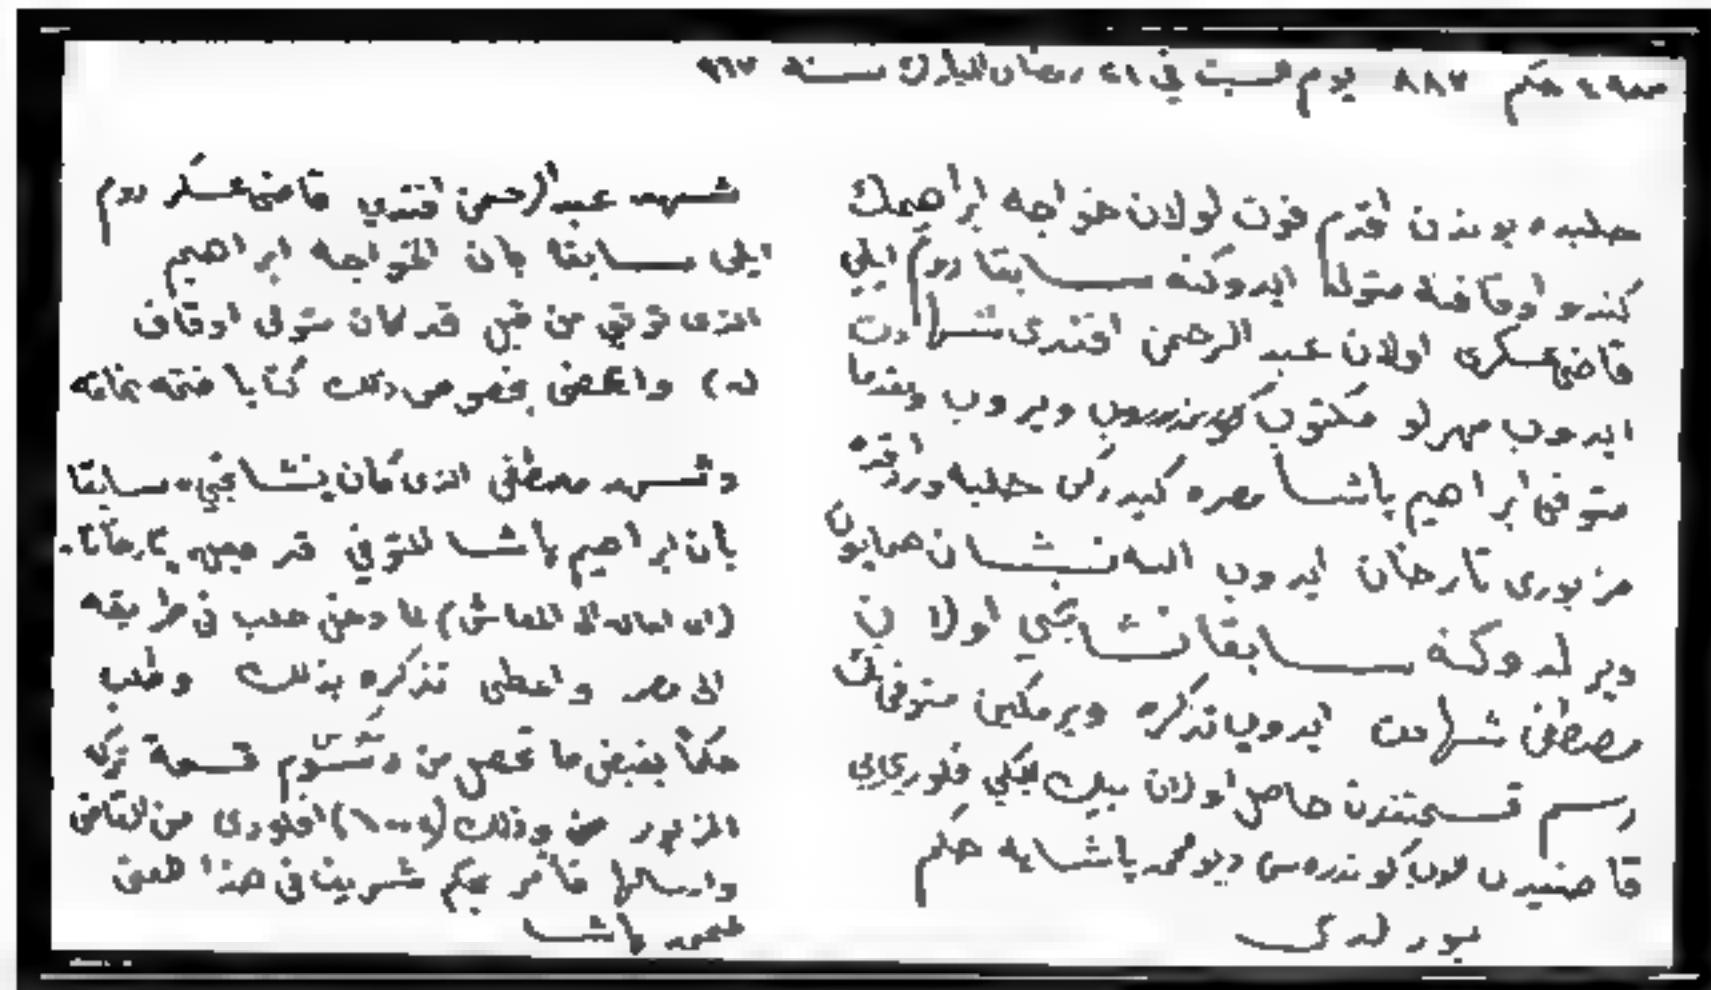 حكم ٨٨٧ يوم السبت في ٢١ رمضان المبارك سنة ٩٦٧
حلبده بوندن اقدم فوت اولان خواجه ابراهيمك
كندو اوقافنه متولى ايدوكنه سابقا روم ايلي
قاضيعسكرى اولان عبد الرحمن افندى شهادت
ايدوب مهرلو مكتوب كوندروب ويروب وبعدما
متوفى ابراهيم پاشا مصره كيدركن حلبه وردقده
مزبورى تارخان ايدوب الينه نشان همايون
ويرلدوكنه سابقا نشانجي اولان
مصطفى شهادت ايدوب تذكره ويرمكين متوفىنك
رسم قسمتندن حاصل اولان بيك ايكي فلورى
قاضيدن الوب كوندره سى ديو محمد پاشايه حكم
بيورلدى
شهد عبد الرحمن افندي قاضي عسكر روم
ايلى سابقا بأن الخواجه ابراهيم
الذى توفي من قبل قد كان متولى اوقاف
له) واعطى بخصوص ذلك كتابا ختمه بخاتمه
وشهد مصطفى الذى كان نشانجي سابقا
بأن ابراهيم پاشا المتوفي قد جعله تارخانا
لما دخل حلب في طريقه
الى مصر واعطى تذكره بذلك وطلب
حكماً بقبض ما تحصل من رسوم قسمة تركه
المزبور وذلك افلورى من القاضي
وارسالها فأمر بحكم شريف في هذا المعنى
محمد پاشا